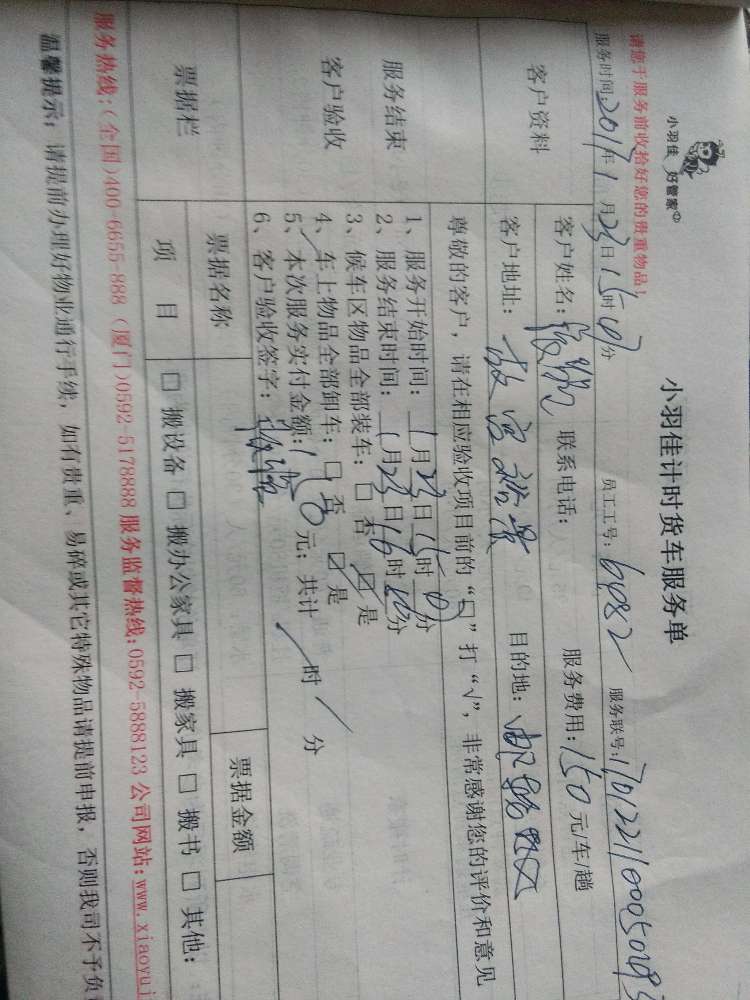 小羽佳 好管家
小羽佳计时货车服务单
请您于服务前收拾好您的贵重物品!
服务时间: 2017年1月23日15时 分 员工工号: 6982 服务联号:
客户资料
客户姓名: 联系电话: 服务费用: 150元/车/趟
客户地址: 目的地:
尊敬的客户，请在相应验收项目前的“口”打“√”，非常感谢您的评价和意见
服务结束
客户验收
1、服务开始时间: 1月23日15时 分
2、服务结束时间: 1月23日16时 分
3、候车区物品全部装车: □ 否 ☑ 是
4、车上物品全部卸车: □ 否 ☑ 是
5、本次服务实付金额: 150元; 共计 / 时 / 分
6、客户验收签字:
票据栏
票据名称 票据金额
项 目 □ 搬设备 □ 搬办公家具 □ 搬家具 □ 搬书 □ 其他:
服务热线:(全国)400-6655-888 (厦门)0592-5178888 服务监督热线:0592-5888123 公司网站:www.xiaoyuj
温馨提示: 请提前办理好物业通行手续，如有贵重、易碎或其它特殊物品请提前申报，否则我司不予负